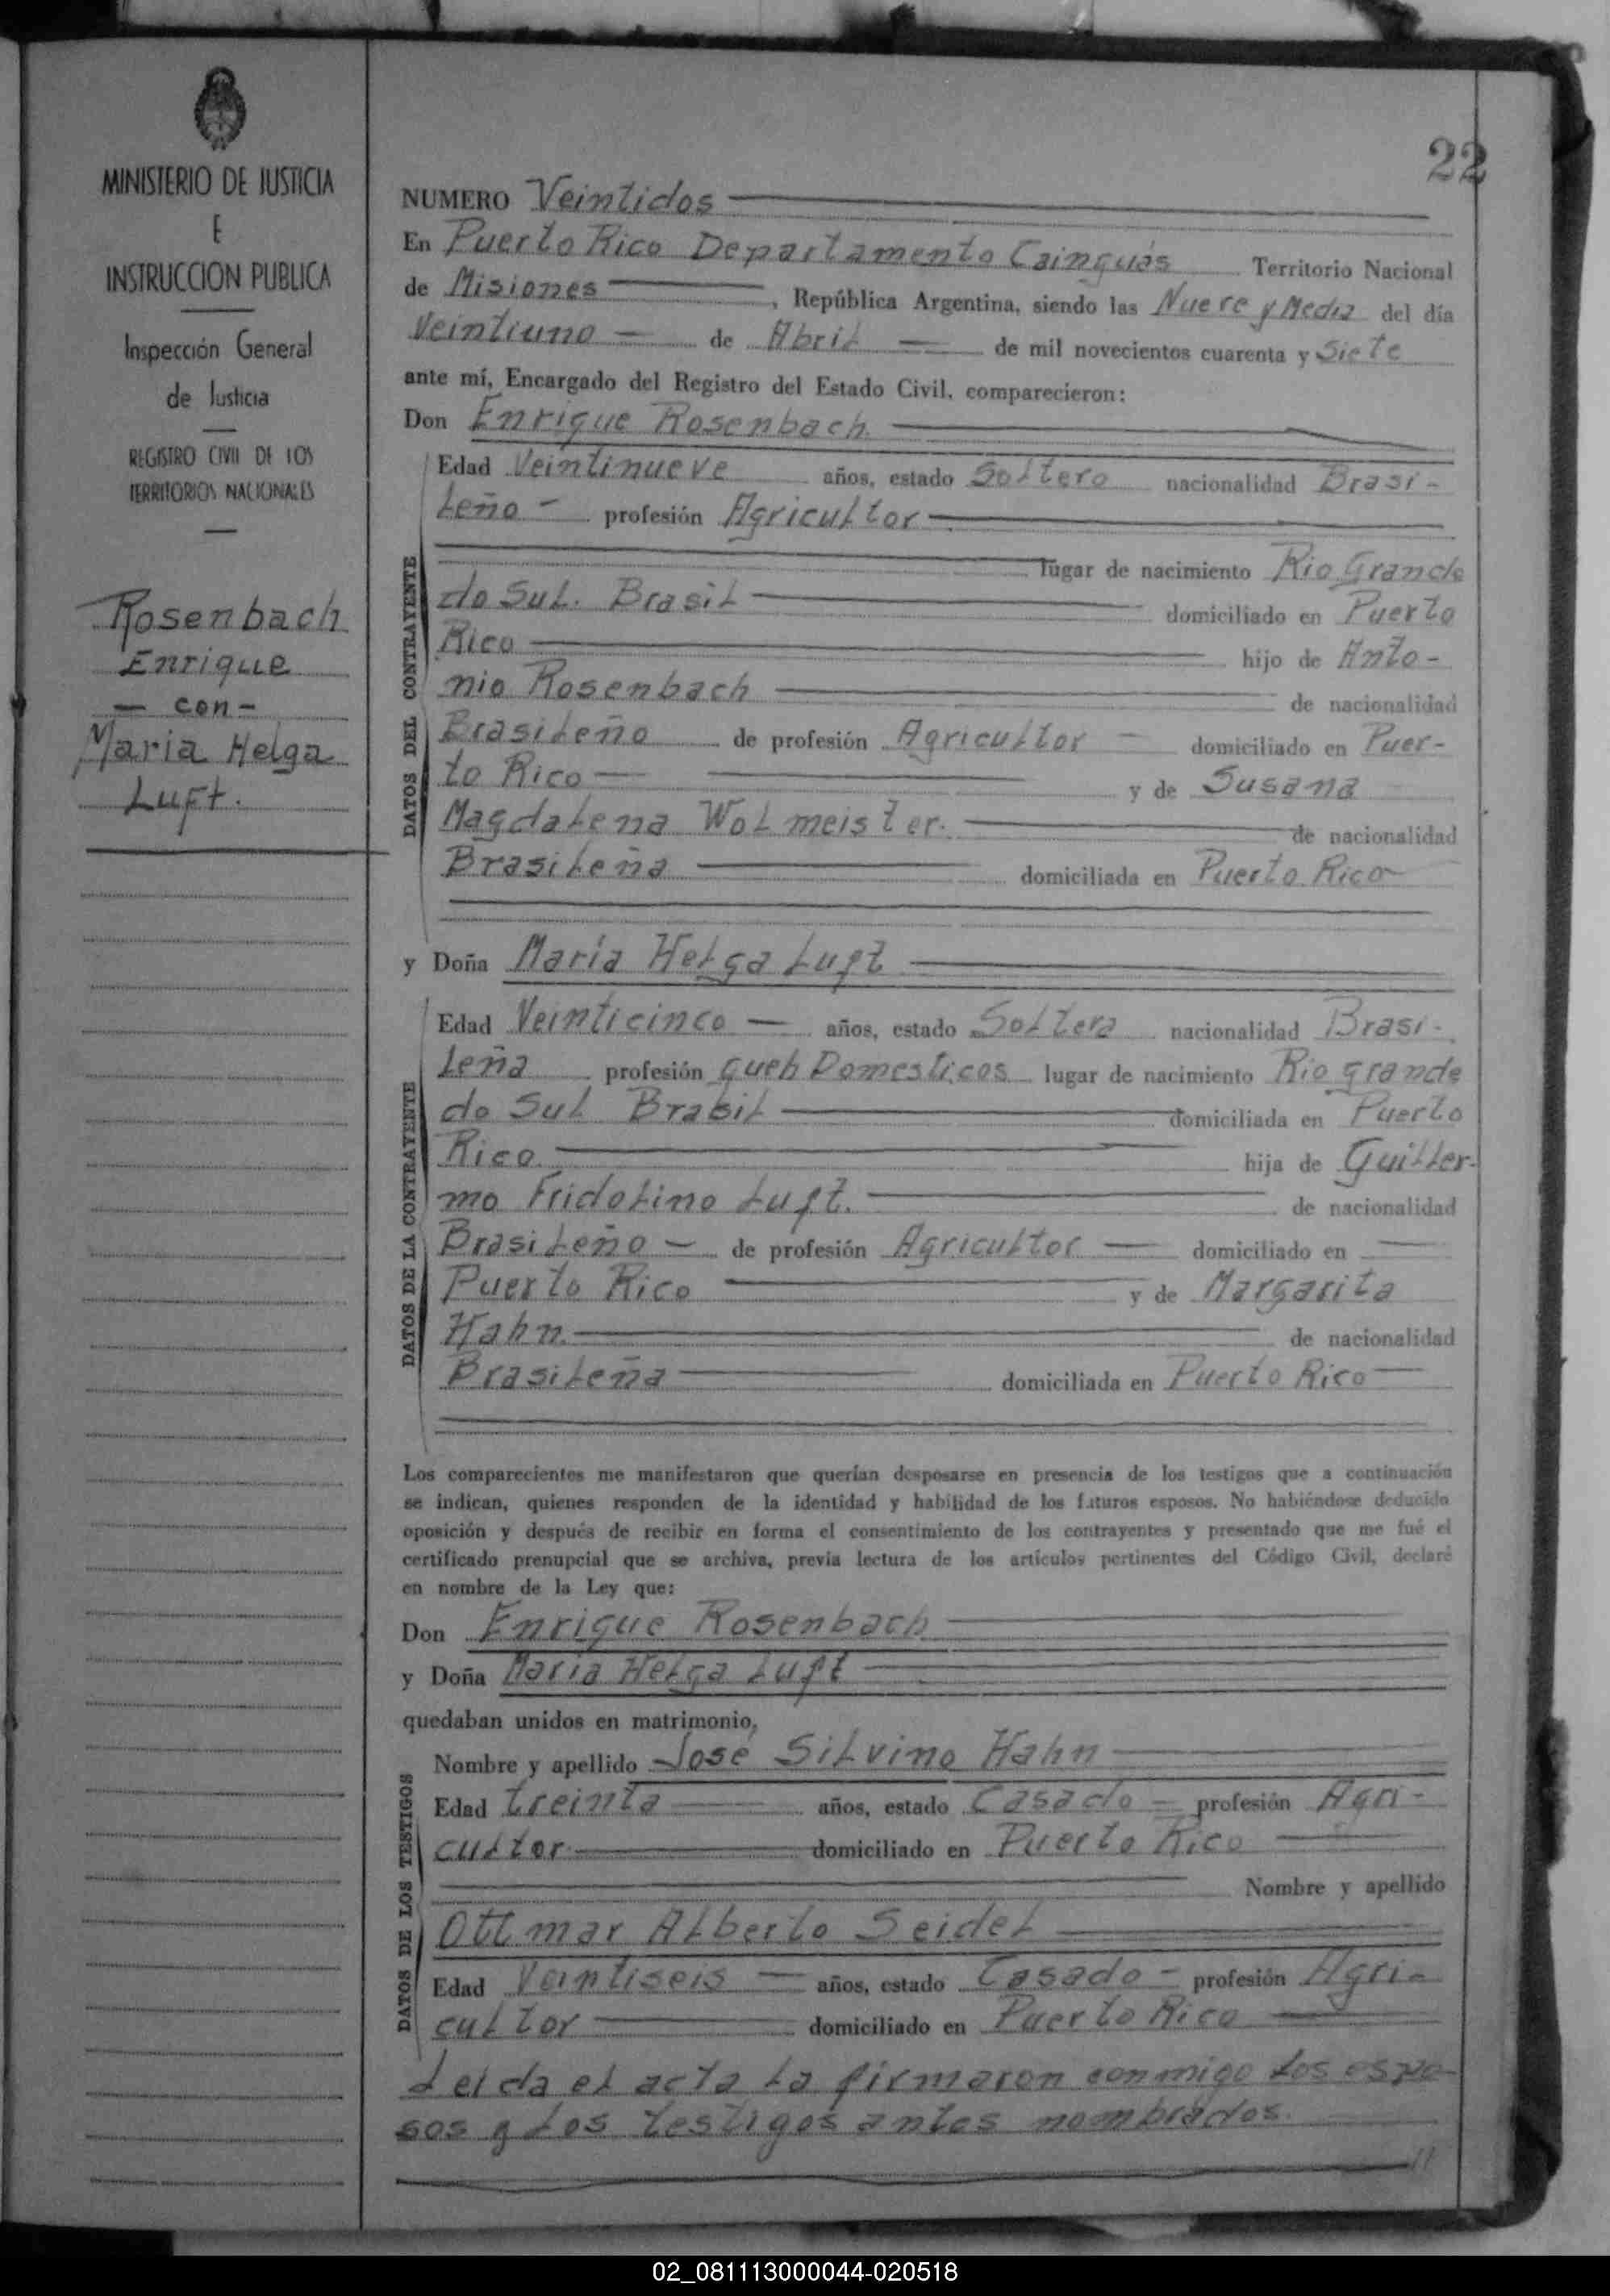 MINISTERIO DE JUSTICIA
E
INSTRUCCION PUBLICA
Inspección General
de Justicia
REGISTRO CIVIL DE LOS
TERRITORIOS NACIONALES
Rosenbach
Enrique
— con —
Maria Helga
Luft.
22
NUMERO Veintidos
En Puerto Rico Departamento Cainguás Territorio Nacional
de Misiones, República Argentina, siendo las Nueve y Media del día
Veintiuno de Abril de mil novecientos cuarenta y Siete
ante mí, Encargado del Registro del Estado Civil, comparecieron:
Don Enrique Rosenbach.
DATOS DEL CONTRAYENTE
Edad Veintinueve años, estado Soltero nacionalidad Brasi-
leño - profesión Agricultor
lugar de nacimiento Rio Grande
do Sul. Brasil domiciliado en Puerto
Rico hijo de Anto-
nio Rosenbach de nacionalidad
Brasileño de profesión Agricultor domiciliado en Puer-
to Rico y de Susana
Magdalena Wolmeister. de nacionalidad
Brasileña domiciliada en Puerto Rico
y Doña María Helga Luft
DATOS DE LA CONTRAYENTE
Edad Veinticinco años, estado Soltera nacionalidad Brasi-
leña profesión queh Domesticos lugar de nacimiento Rio grande
do Sul Brasil domiciliada en Puerto
Rico hija de Guiller-
mo Fridolino Luft. de nacionalidad
Brasileño de profesión Agricultor domiciliado en
Puerto Rico y de Margarita
Hahn. de nacionalidad
Brasileña domiciliada en Puerto Rico
Los comparecientes me manifestaron que querían desposarse en presencia de los testigos que a continuación
se indican, quienes responden de la identidad y habilidad de los futuros esposos. No habiéndose deducido
oposición y después de recibir en forma el consentimiento de los contrayentes y presentado que me fué el
certificado prenupcial que se archiva, previa lectura de los artículos pertinentes del Código Civil, declaré
en nombre de la Ley que:
Don Enrique Rosenbach
y Doña Maria Helga Luft
quedaban unidos en matrimonio,
DATOS DE LOS TESTIGOS
Nombre y apellido José Silvino Hahn
Edad treinta años, estado Casado - profesión Agri-
cultor domiciliado en Puerto Rico
Nombre y apellido
Ottmar Alberto Seidel
Edad Veintiseis años, estado Casado - profesión Agri-
cultor domiciliado en Puerto Rico
Leida el acta la firmaron conmigo los espo-
sos y los testigos antes nombrados.
02_081113000044-020518